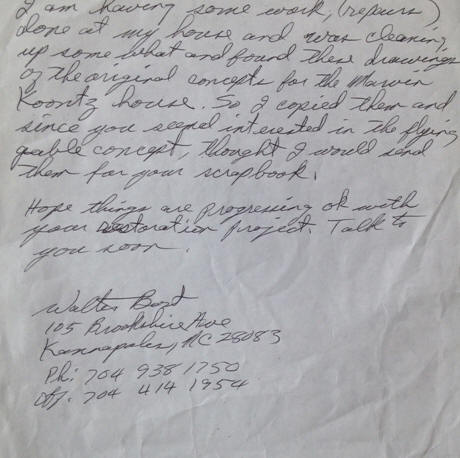 I am having some work, (repairs)
done at my house and was cleaning
up some what and found these drawings
of the original concepts for the Marvin
Koontz house. So I copied them and
since you seemd interested in the flying
gable concept, thought I would send
them for your scrapbook.
Hope things are progressing ok with
your restoration project. Talk to
you soon.
Walter Bost
105 Brookshire Ave
Kannapolis, NC 28083
Ph: 704 938 1750
Off. 704 414 1954